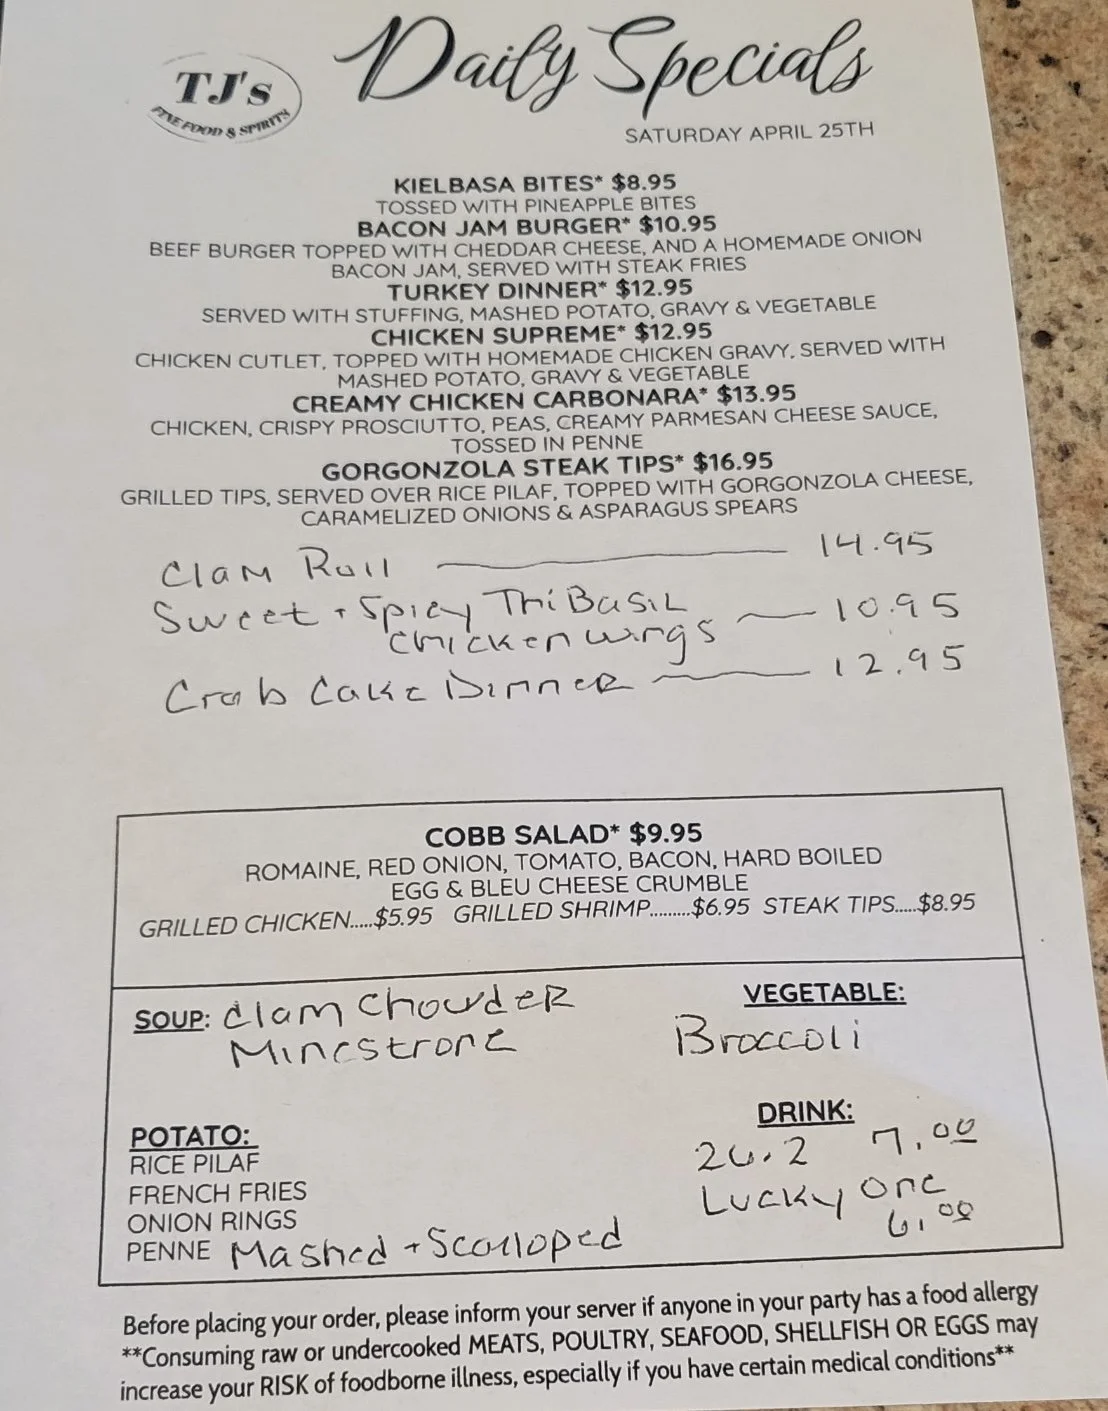 TJ's
FINE FOOD & SPIRITS
Daily Specials
SATURDAY APRIL 25TH
KIELBASA BITES* $8.95
TOSSED WITH PINEAPPLE BITES
BACON JAM BURGER* $10.95
BEEF BURGER TOPPED WITH CHEDDAR CHEESE, AND A HOMEMADE ONION
BACON JAM, SERVED WITH STEAK FRIES
TURKEY DINNER* $12.95
SERVED WITH STUFFING, MASHED POTATO, GRAVY & VEGETABLE
CHICKEN SUPREME* $12.95
CHICKEN CUTLET, TOPPED WITH HOMEMADE CHICKEN GRAVY. SERVED WITH
MASHED POTATO, GRAVY & VEGETABLE
CREAMY CHICKEN CARBONARA* $13.95
CHICKEN, CRISPY PROSCIUTTO, PEAS, CREAMY PARMESAN CHEESE SAUCE,
TOSSED IN PENNE
GORGONZOLA STEAK TIPS* $16.95
GRILLED TIPS, SERVED OVER RICE PILAF, TOPPED WITH GORGONZOLA CHEESE,
CARAMELIZED ONIONS & ASPARAGUS SPEARS
Clam Roll — 14.95
Sweet + Spicy Thi Basil
Chicken wings — 10.95
Crab Cake Dinner — 12.95
COBB SALAD* $9.95
ROMAINE, RED ONION, TOMATO, BACON, HARD BOILED
EGG & BLEU CHEESE CRUMBLE
GRILLED CHICKEN.....$5.95 GRILLED SHRIMP.........$6.95 STEAK TIPS.....$8.95
SOUP: Clam Chowder
Minestrone
VEGETABLE:
Broccoli
POTATO:
RICE PILAF
FRENCH FRIES
ONION RINGS
PENNE Mashed + Scalloped
DRINK:
26.2 7.00
Lucky One
6.00
Before placing your order, please inform your server if anyone in your party has a food allergy
**Consuming raw or undercooked MEATS, POULTRY, SEAFOOD, SHELLFISH OR EGGS may
increase your RISK of foodborne illness, especially if you have certain medical conditions**